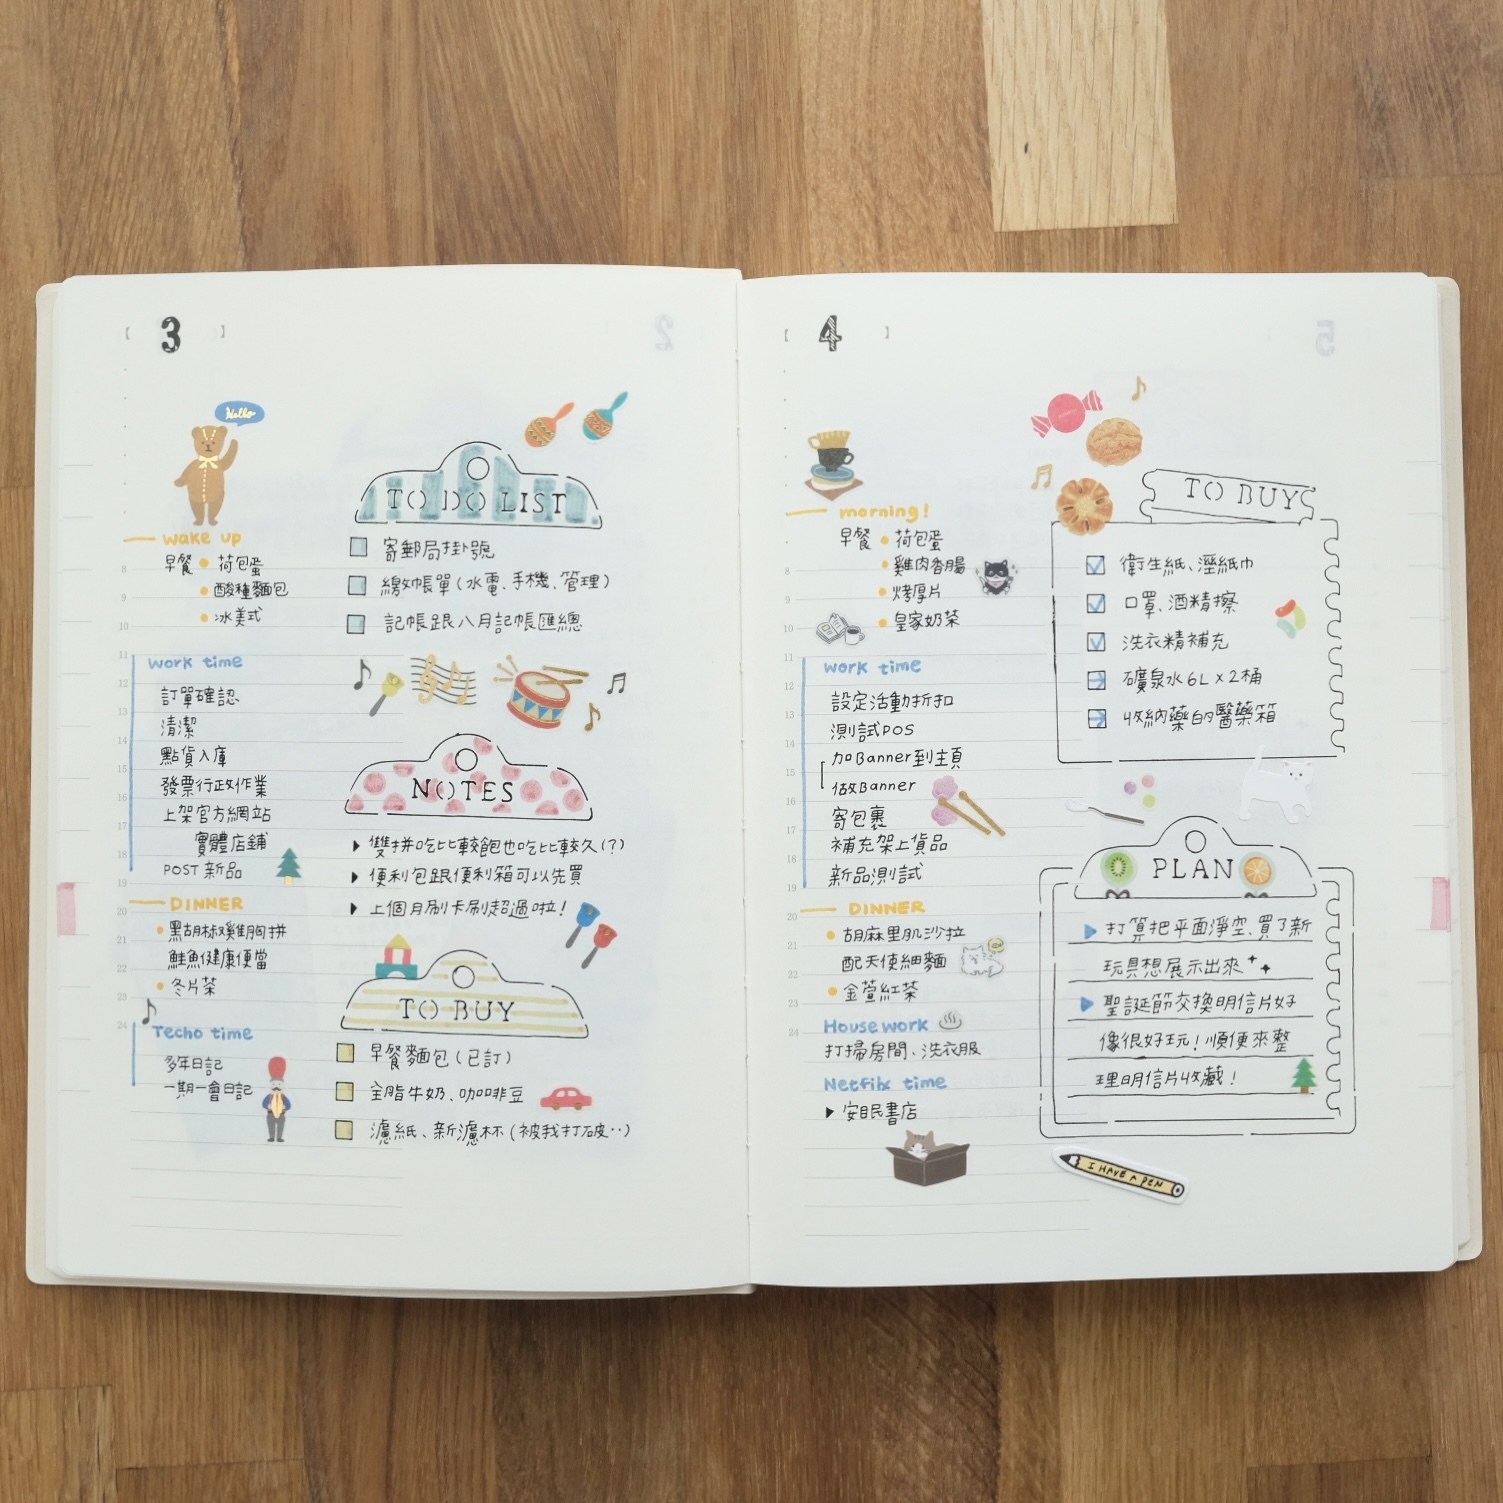 3
Hello
wake up
早餐 荷包蛋
酸種麵包
冰美式
8
9
10
11
12
13
14
15
16
17
18
19
20
21
22
23
24
work time
訂單確認
清潔
點貨入庫
發票行政作業
上架官方網站
實體店鋪
POST 新品
DINNER
黑胡椒雞胸拼
鮭魚健康便當
冬片茶
Techo time
多年日記
一期一會日記
TO DO LIST
寄郵局掛號
繳帳單(水電、手機、管理)
記帳跟八月記帳匯總
NOTES
雙拼吃比較飽也吃比較久(?)
便利包跟便利箱可以先買
上個月刷卡刷超過啦!
TO BUY
早餐麵包(已訂)
全脂牛奶、咖啡豆
濾紙、新濾杯(被我打破··)
4
morning!
早餐 荷包蛋
雞肉香腸
烤厚片
皇家奶茶
8
9
10
11
12
13
14
15
16
17
18
19
20
21
22
23
24
work time
設定活動折扣
測試POS
加Banner到主頁
做Banner
寄包裹
補充架上貨品
新品測試
DINNER
胡麻里肌沙拉
配天使細麵
金萱紅茶
Housework
打掃房間、洗衣服
Netflix time
安眠書店
TO BUY
衛生紙、溼紙巾
口罩、酒精擦
洗衣精補充
礦泉水6L x 2桶
收納藥的醫藥箱
PLAN
打算把平面淨空、買了新
玩具想展示出來
聖誕節交換明信片好
像很好玩!順便來整
理明信片收藏!
I HAVE A PEN